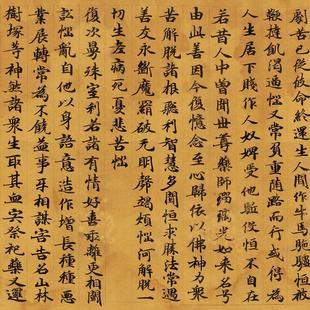 劇苦已從彼命終還生人間作牛馬駞驢恒被
鞭撻飢渴逼惱又常負重隨路而行或得為
人生居下賤作人奴婢受他驅役恒不自在
若昔人中曾聞世尊藥師瑠璃光如來名号
由此善因今復憶念至心歸依以佛神力衆
苦解脫諸根聰利智慧多聞恒求勝法常遇
善友永斷魔罥破无明㲉竭煩惱河解脫一
切生老病死憂悲苦惱
復次曼殊室利若諸有情好喜乖離更相鬪
訟惱亂自他以身語意造作增長種種惡
業展轉常為不饒益事互相謀害告召山林
樹塚等神煞諸衆生取其血宍祭祀藥叉邏